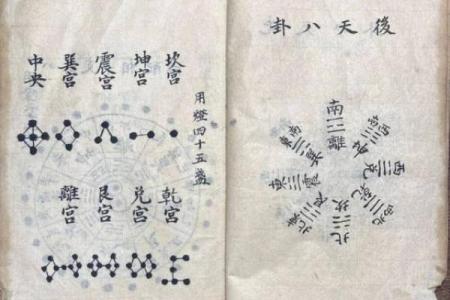 後天八卦
南
離
西南
坤
西
兌
西北
乾
北
坎
東北
艮
東
震
東南
巽
坎宫
坤宫
震宫
巽宫
中央
用燈四十五盞
乾宫
兌宫
艮宫
離宫